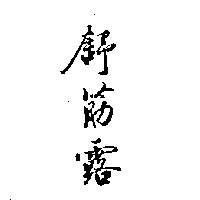 舒筋露